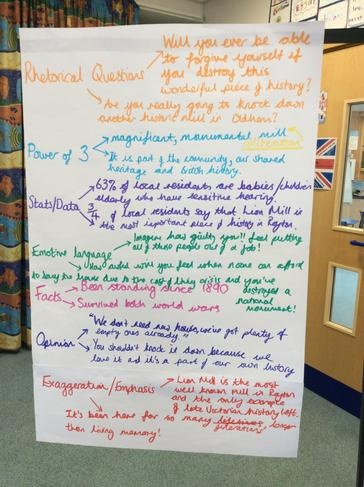 Will you ever be able
Rhetorical Questions → to forgive yourself if
you destroy this
wonderful piece of history?
Are you really going to knock down
another historic mill in Oldham?
Power of 3 → magnificent, monumental mill
alliteration
It is part of the community, our shared
heritage and British history.
Stats/Data → 63% of local residents are babies/children
elderly who have sensitive hearing.
3/4 of local residents say that Lion Mill is
the most important piece of history in Royton.
Emotive language → Imagine how guilty you'll feel putting
all these people out of a job!
How would you feel when no one can afford
to buy the houses due to the cost of living crisis and you've
destroyed a
national
monument!
Facts → Been standing since 1890
Survived both world wars
Opinion → "We don't need new houses, we've got plenty of
empty ones already."
You shouldn't knock it down because we
love it and it's a part of our own history
Exaggeration/Emphasis → Lion Mill is the most
well known mill in Royton
and the only example
of late Victorian history left.
It's been here for so many lifetimes, longer
than living memory!